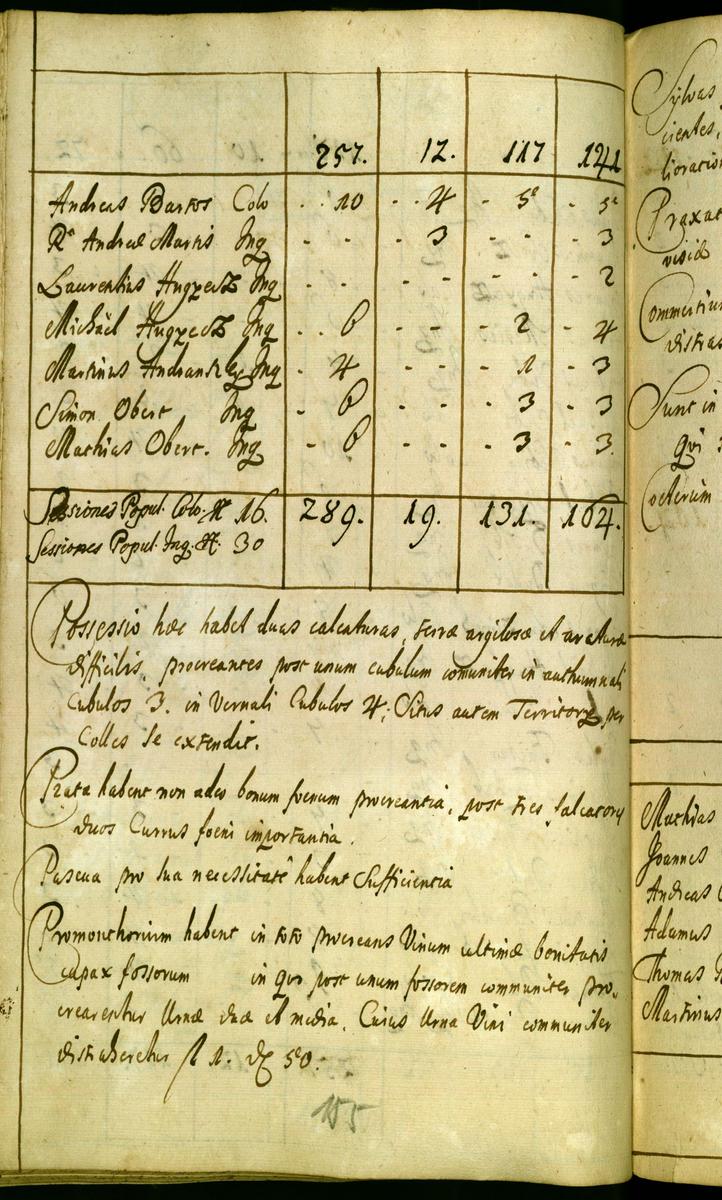 257. 12. 117 141
Andreas Bartos Colo - - 10 - - 4 - 5 - 5
Ra Andreæ Martis Inq - - - - 3 - - - 3
Laurentius Hugyecz Inq - - - - - - - - 2
Michäel Hugyecz Inq - - 6 - - - - 2 - 4
Martinus Inq - 4 - - - - 1 - 3
Simon Obert Inq - 6 - - - - 3 - 3
Mathias Obert. Inq - 6 - - - - 3 - 3.
Sessiones Popul. Colo. 16. 289. 19. 131. 164.
Sessiones Popul. Inq. 30
Possessio hæc habet duas calcaturas, terræ argilosæ et araturæ
difficilis, procreantes post unum cubulum comuniter in authumnali
Cubulos 3. in Vernali Cubulos 4; Situs autem Territory per
Colles se extendit.
Prata habent non adeo bonum foenum procreantia, post tres falcatory
duos Currus foeni importantia.
Pascua pro sua necessitate habent Sufficientia
Promonthorium habent in toto procreans Vinum ultimæ bonitatis
capax fossorum in quo post unum fossorem communiter pro-
crearentur Urnæ duæ et media, Cuius Urna Vini communiter
distraheretur fl 1. 50.
155
Sylvas
cientes,
lioratio
visiæ
Commertiu
distra
Sunt in
qui
Coeterum
Mathias
Joannes
Andreas
Adamus
Thomas
Martinus